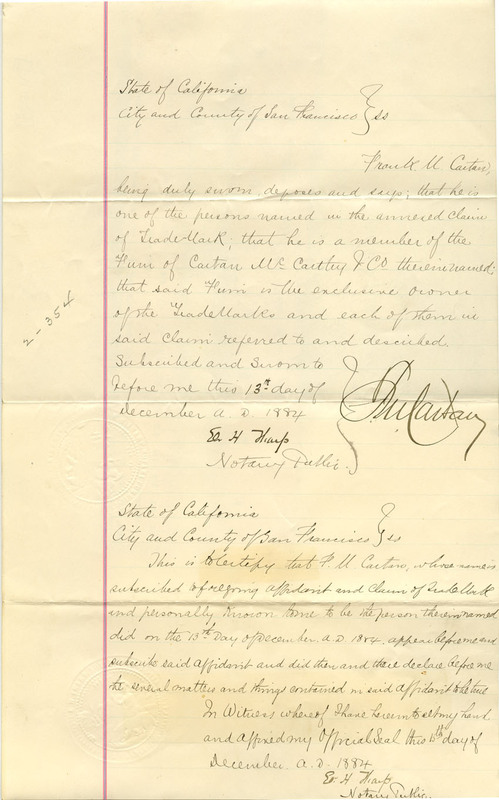 State of California
City and County of San Francisco } ss
Frank M Cartan,
being duly sworn, deposes and says; that he is
one of the persons named in the annexed Claim
of Trade Mark; that he is a member of the
Firm of Cartan McCarthy & Co. therein named;
that said Firm is the exclusive owner
of the Trade Marks and each of them in
said Claim referred to and described.
Subscribed and Sworn to
before me this 13th day of
December A. D. 1884
F M Cartan
Ed. H Tharp
Notary Public.
2-354
State of California
City and County of San Francisco } ss
This is to Certify that F. M Cartan, whose name is
subscribed to foregoing affidavit and Claim of Trade Mark
and personally known to me to be the person therein named
did on the 13th Day of December. A. D. 1884. appear before me and
subscribe said Affidavit and did then and there declare before me
the several matters and things contained in said Affidavit to be true
In Witness whereof I have hereunto set my hand
and affixed my Official Seal this day of
December. A. D. 1884
Ed. H Tharp
Notary Public.